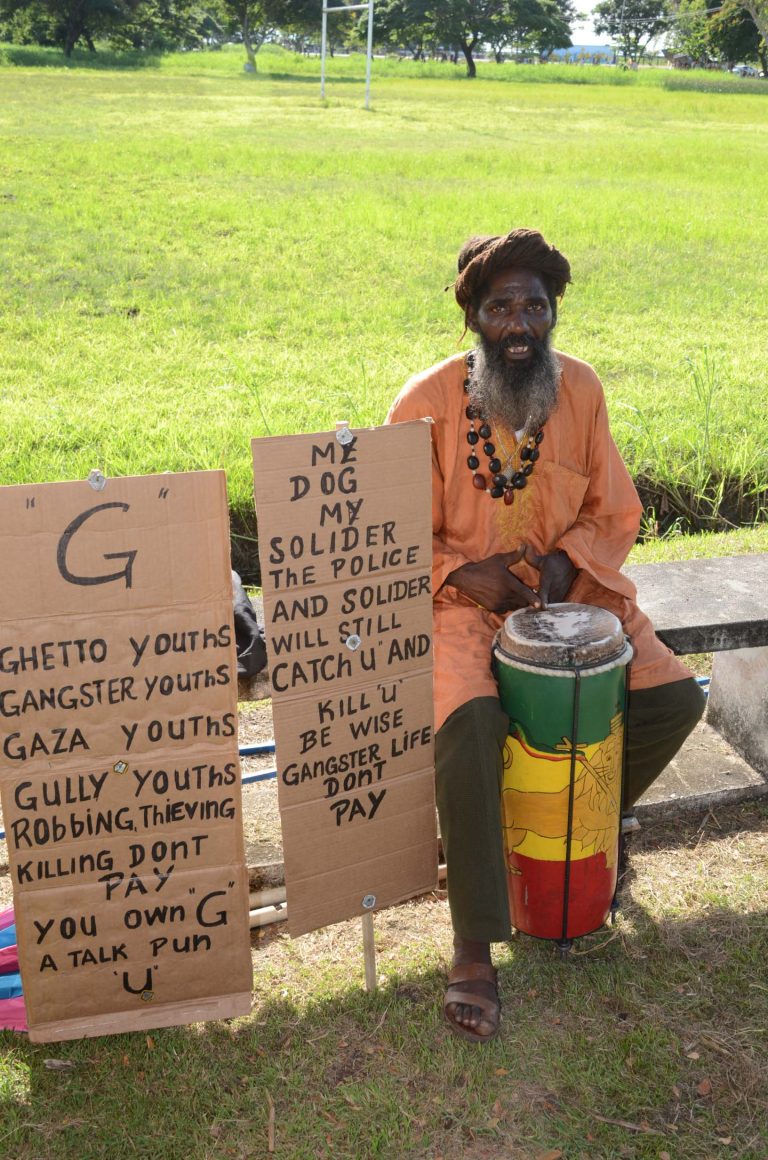 " G "
GHETTO YOUTHS
GANGSTER YOUTHS
GAZA YOUTHS
GULLY YOUTHS
ROBBING, THIEVING
KILLING DONT
PAY
YOU OWN "G"
A TALK PUN
"U"
MY
DOG
MY
SOLIDER
THE POLICE
AND SOLIDER
WILL STILL
CATCH "U" AND
KILL "U"
BE WISE
GANGSTER LIFE
DONT
PAY